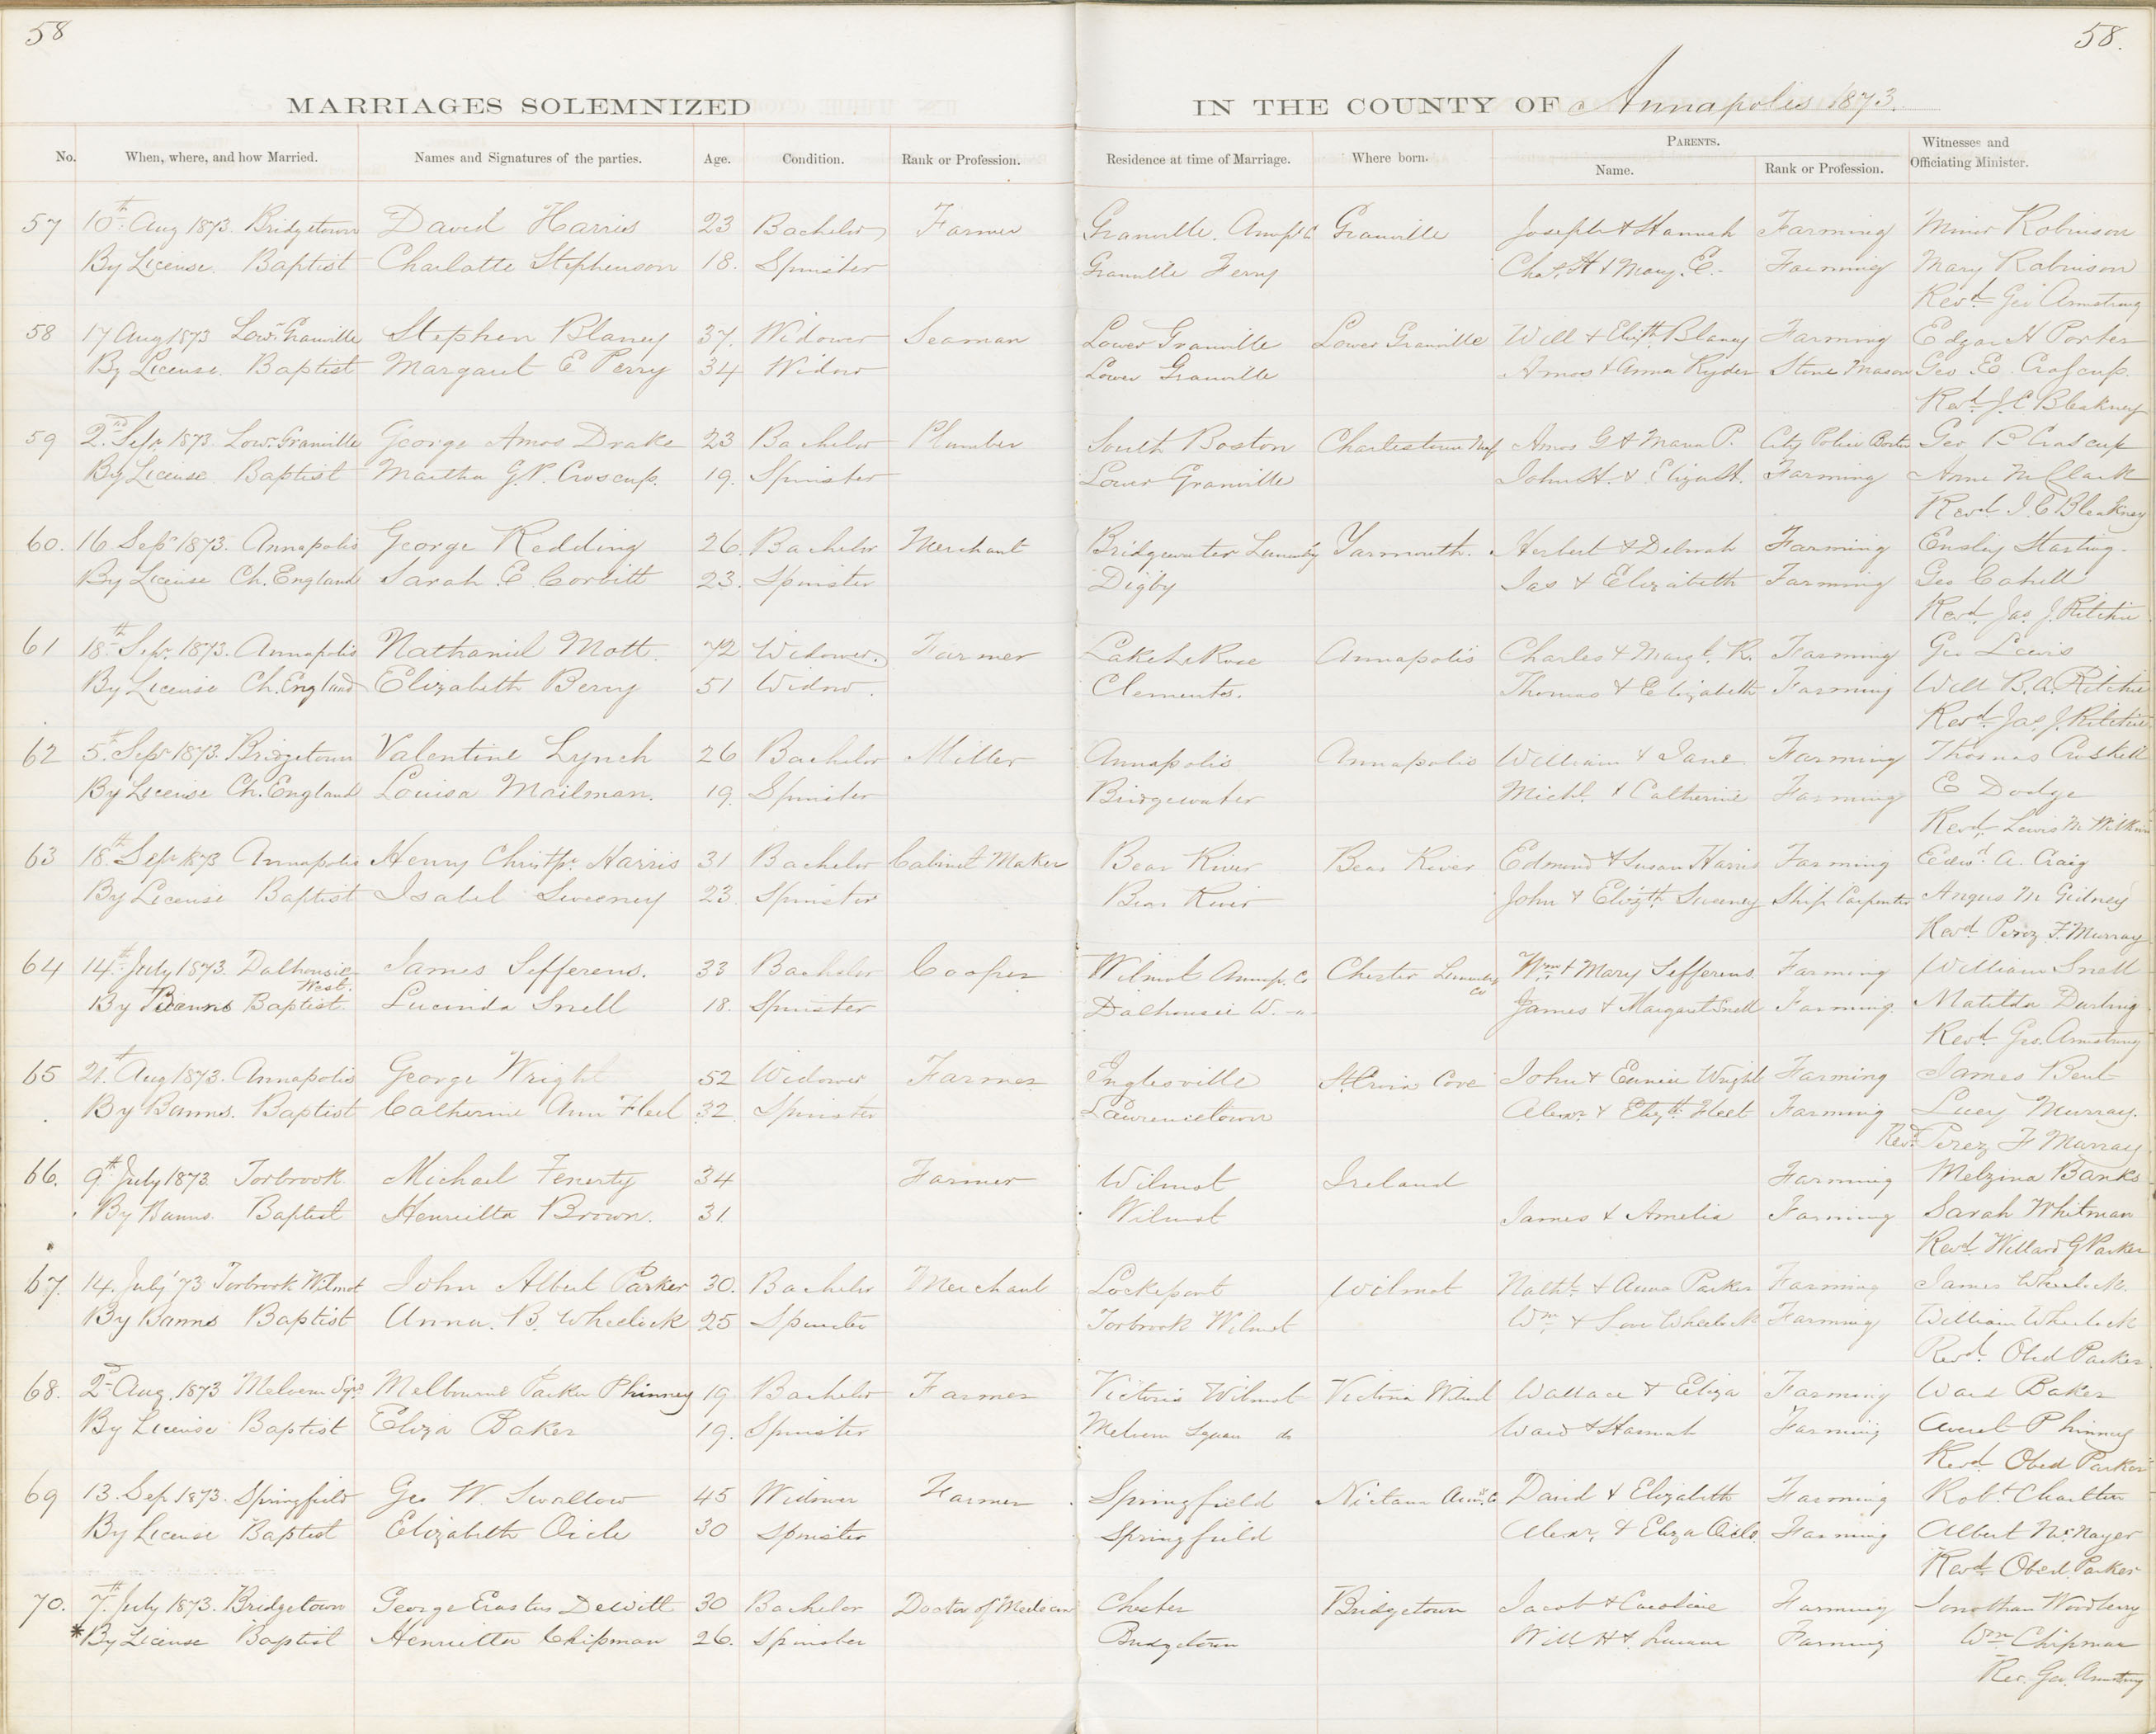 58
58.
MARRIAGES SOLEMNIZED IN THE COUNTY OF Annapolis 1873.
No. When, where, and how Married. Names and Signatures of the parties. Age. Condition. Rank or Profession. Residence at time of Marriage. Where born. PARENTS. Name. Rank or Profession. Witnesses and Officiating Minister.
57 10th Aug 1873. Bridgetown David Harris 23 Bachelor Farmer Granville. Annps. C Granville Joseph & Hannah Farming Minor Robinson
By License. Baptist Charlotte Stephenson 18. Spinster Granville Ferry Chas. H & Mary. E. Farming Mary Robinson
Revd. Geo Armstrong
58 17 Aug 1873 Lowr. Granville Stephen Blaney 37. Widower Seaman Lower Granville Lower Granville Will & Elizth Blaney Farming Edgar H Porter
By License. Baptist Margaret E Perry 34 Widow Lower Granville Amos & Anna Ryder Stone Mason Geo E. Croscup.
Revd. J.C Bleakney
59 2nd. Sepr 1873. Lowr. Granville George Amos Drake 23 Bachelor Plumber South Boston Charlestown Amos G & Maria P. City Police Boston Geo B Croscup
By License Baptist Martha G.P. Croscup. 19. Spinster Lower Granville John H. & Eliza H. Farming Anne M Clark
Revd. J.C Bleakney
60. 16 Sepr 1873. Annapolis George Redding 26. Bachelor Merchant Bridgewater Yarmouth. Herbert & Deborah Farming
By License Ch. England Sarah E. Corbitt 23. Spinster Digby Jas & Elizabeth Farming Geo Cahill
Revd. Jas. J. Ritchie
61 18th Sepr. 1873. Annapolis Nathaniel Mott. 72 Widower. Farmer LakeLaRose Annapolis Charles & Margt. R. Farming Geo Lewis
By License Ch. England Elizabeth Berry 51 Widow. Clements. Thomas & Elizabeth Farming Will B.A. Ritchie
Revd. Jas. J. Ritchie
62 5th Sepr 1873. Bridgetown Valentine Lynch 26 Bachelor Miller Annapolis Annapolis William & Jane Farming Thomas
By License Ch. England Louisa Mailman. 19. Spinster Bridgewater Michl. & Catherine Farming E Dodge
Revd. Lewis M Wilkins
63 18th Sepr 1873 Annapolis Henry Christpr. Harris 31 Bachelor Cabinet Maker Bear River Bear River Edmund & Susan Harris Farming Edwd. A. Craig
By License Baptist Isabel Sweeney 23. Spinster Bear River John & Elizth Sweeney Ship Carpenter Angus M Gidney
Revd. Perez F. Murray
64 14th July 1873. Dalhousie West. James Sefferens. 33 Bachelor Cooper Wilmot Annap. Co Chester Lunenbg Co Wm. & Mary Sefferens. Farming William Snell
By Banns Baptist. Lucinda Snell 18. Spinster Dalhousie W. -"- James & Margaret Snell Farming. Matilda Durling
Revd. Geo. Armstrong
65 21st Aug 1873. Annapolis George Wright 52 Widower Farmer Inglesville St Croix Cove John & Eunice Wright Farming James Bent
By Banns. Baptist Catherine Ann Fleet 32. Spinster Lawrencetown Alexr. & Elizth. Fleet Farming Lucy Murray.
Revd. Perez F Murray
66. 9th July 1873. Torbrook. Michael Fenerty 34 Farmer Wilmot Ireland Farming Melzina Banks
By Banns. Baptist Henrietta Brown. 31. Wilmot James & Amelia Farming Sarah Whitman
Revd Willard G Parker
67. 14. July '73 Torbrook Wilmot John Albert Parker 30. Bachelor Merchant Lockeport Wilmot Nathl. & Anna Parker Farming James Wheelock.
By Banns Baptist Anna. B. Wheelock 25 Spinster Torbrook Wilmot Wm. & Wheelock Farming William Wheelock
Revd. Obed Parker
68. 2nd Aug. 1873 Melvern Sqre Melbourne Parker Phinney 19 Bachelor Farmer Victoria Wilmot Victoria Wilmot Wallace & Eliza Farming Ward Baker
By License Baptist Eliza Baker 19. Spinster Melvern Square do Ward & Hannah Farming Averet Phinney
Revd. Obed Parker
69 13. Sep 1873. Springfield Geo W. Swallow 45 Widower Farmer Springfield Nictaux Ann. Co David & Elizabeth Farming Robt Charlton
By License Baptist Elizabeth Oicle 30 Spinster Springfield Alexr. & Eliza Oicle. Farming Albert McNayer
Revd. Obed Parker
70. 7th July 1873. Bridgetown George Erastus DeWitt 30 Bachelor Doctor of Medicin Chester Bridgetown Jacob & Caroline Farming Jonothan Woodbery
*By License Baptist Henrietta Chipman 26. Spinster Bridgetown Will H & Farming Wm Chipman
Rev. Geo. Armstrong